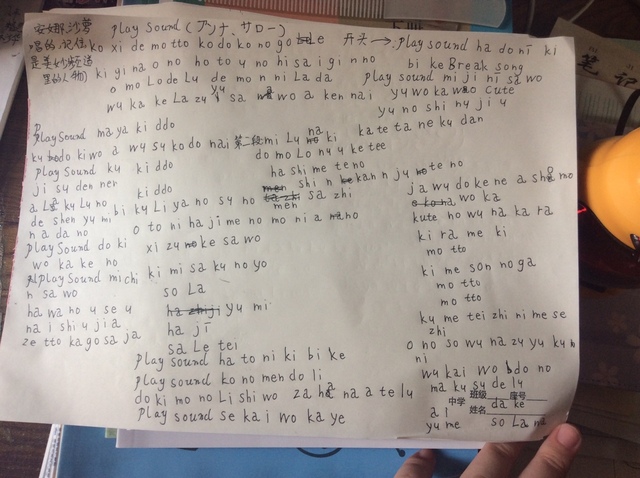 安娜.沙萝
唱的,记住
是美妙频道
里的人物)
play sound (アンナ、サロー)
ko xi de mo tto ko do ko no go e
ki gi na o no ho to y no hi sa i gi n no
o mo Lo de Lu de mo n ni La da
wu ka ke La zu yu i sa wo a ken nai
开头→play sound ha do nī ki
bi ke Break song
play sound mi ji nī sa wo
yu wo ka wa o cute
yu no shi nu ji u
play sound ma ya ki ddo
ku do ki wo a wu su ko do nai 第二段 mi Lu na ki
play sound ku ki ddo
ji su den ner ki ddo
a La ku Lu no bi ku Li ya no su no men sa zhi
de shen yu mi
na da no o to ni ha ji me no mo ni a no
play sound do ki xi zu ke sa wo
wo ka ke no
play sound mi chi ki mi sa ku no yo
n sa wo so La
ha wa no u se u yu mi
na i shi u ji a ha jī
ze tto ka go sa ja sa Le tei
ka te ta ne ku dan
do mo Lo nu u ke tee
ha shi me te no
shi n kan n ju te no
ja wu do ke ne a sh mo
wo ka
kute ho wu na ka ra
ki ra me ki
mo tto
ki me son no ga
mo tto
mo tto
ku me tei zhi ni me se
zhi
o no so wu na zu yu ku
ni
play sound ha to ni ki bi ke
play sound ko no men do li
do ki mo no Li shi wo za ha na a te lu
play sound se kai wo ka ye
wu kai wo do no
ma ku su de lu
中学 班级 座号
姓名
da ke
a i
yu me so La
笔记